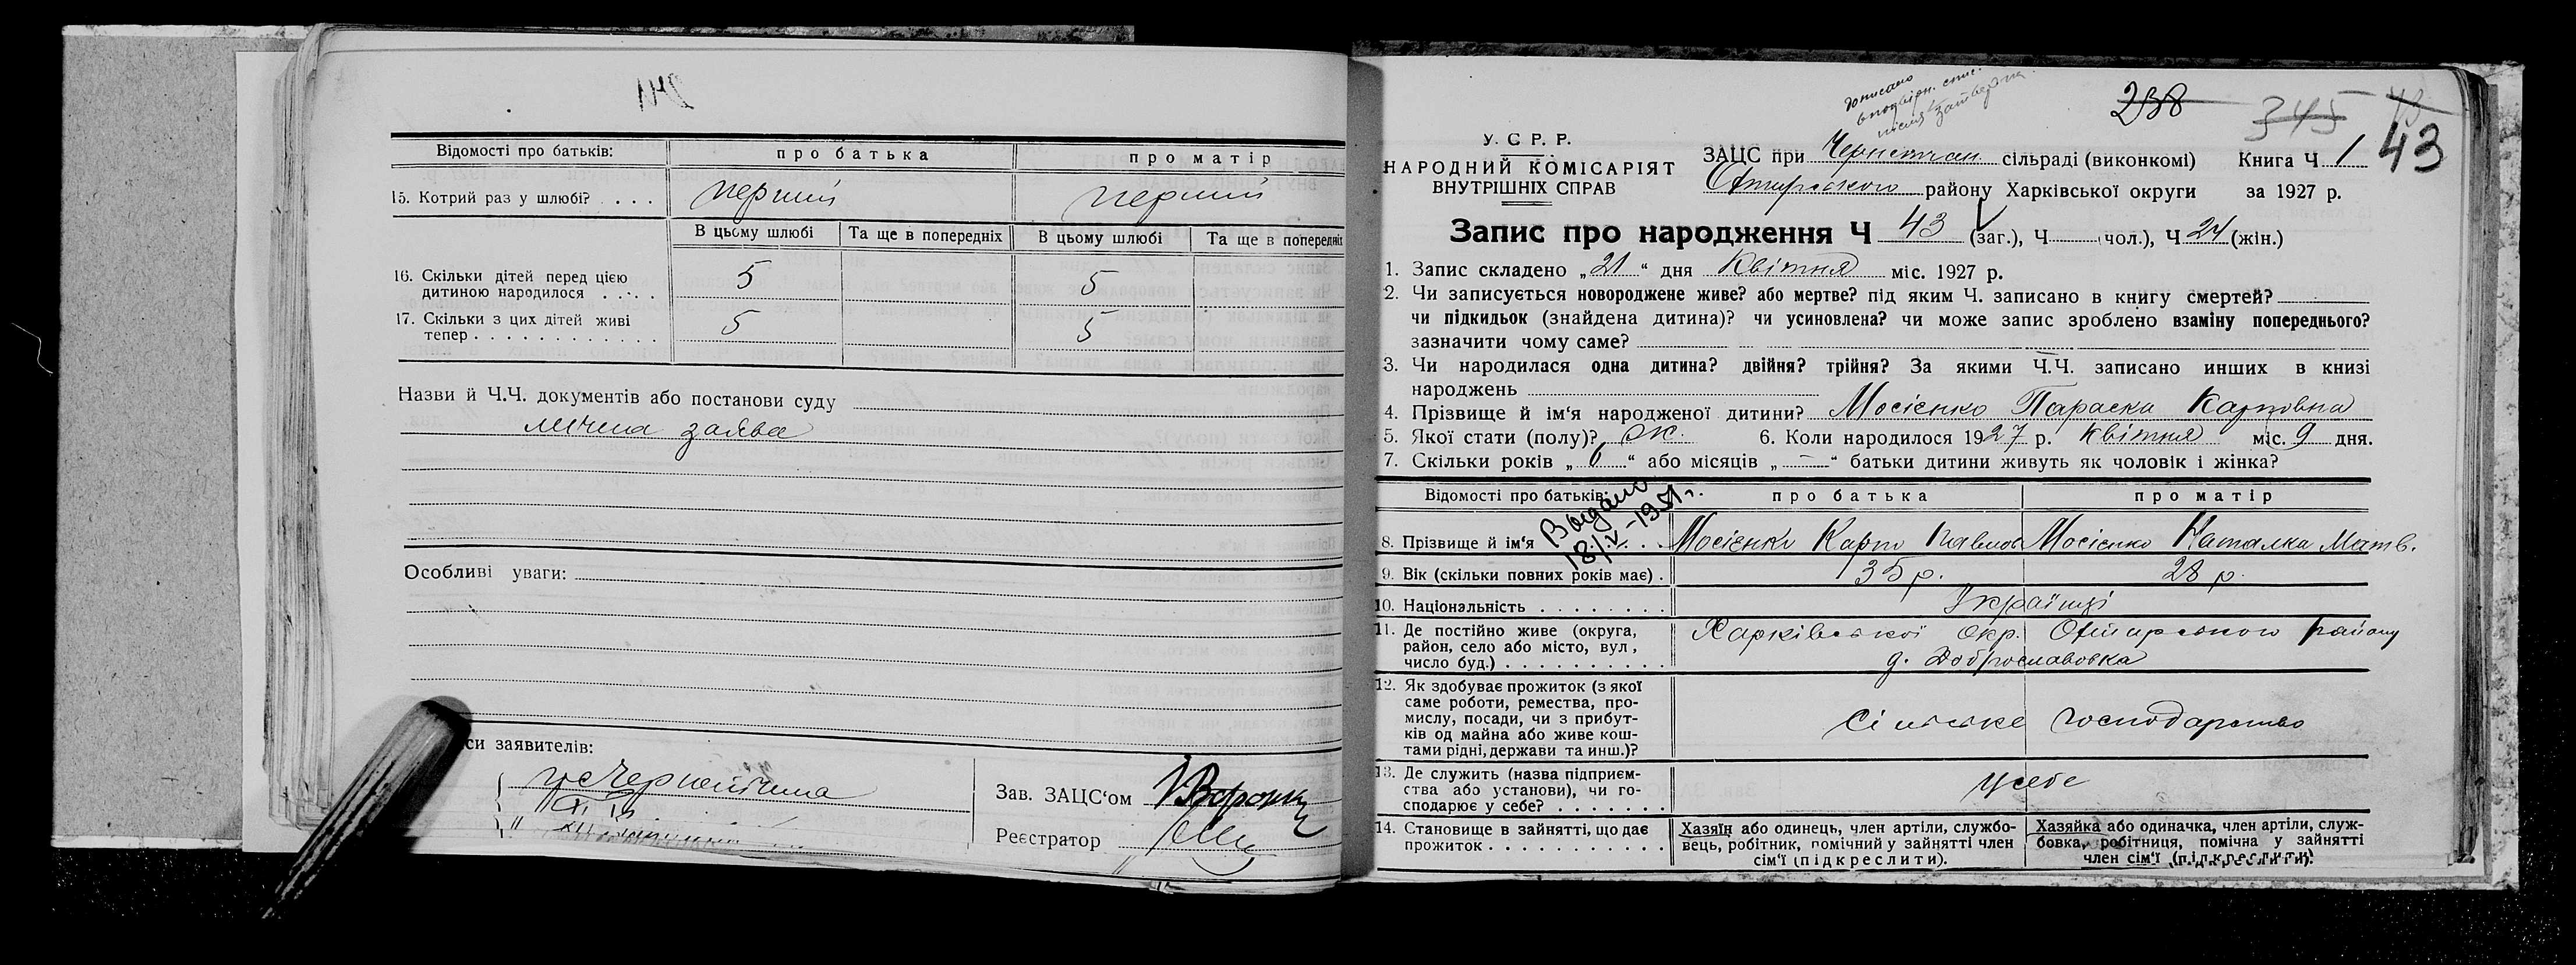 241
Відомості про батьків: про батька про матір
15. Котрий раз у шлюбі? . . . . перший перший
В цьому шлюбі Та ще в попередніх В цьому шлюбі Та ще в попередніх
16. Скільки дітей перед цією
дитиною народилося . . . . 5 5
17. Скільки з цих дітей живі
тепер . . . . . . . . . . . . . 5 5
Назви й Ч.Ч. документів або постанови суду
лична заява
Особливі уваги:
си заявителів:
Зав. ЗАЦС‘ом
Реєстратор
дописано
238 345 43
43
У. С Р. Р.
НАРОДНИЙ КОМІСАРІЯТ
ВНУТРІШНІХ СПРАВ
ЗАЦС при сільраді (виконкомі) Книга Ч 1
району Харківської округи за 1927 р.
Запис про народження Ч 43 (заг.), Ч (чол.), Ч 24 (жін.)
1. Запис складено „21“ дня Квітня міс. 1927 р.
2. Чи записується новороджене живе? або мертве? під яким Ч. записано в книгу смертей?
чи підкидьок (знайдена дитина)? чи усиновлена? чи може запис зроблено взаміну попереднього?
зазначити чому саме?
3. Чи народилася одна дитина? двійня? трійня? За якими Ч.Ч. записано инших в книзі
народжень
4. Прізвище й ім‘я народженої дитини? Мосієнко Параска Карповна
5. Якої стати (полу)? ж. 6. Коли народилося 1927 р. квітня міс. 9 дня.
7. Скільки років „6“ або місяців „—“ батьки дитини живуть як чоловік і жінка?
Відомості про батьків: про батька про матір
Выдано
18/IV-1951г.
8. Прізвище й ім‘я . . . . Мосієнко Карп Павлов Мосієнко Наталка Матв.
9. Вік (скільки повних років має) . 35 р. 28 р.
10. Національність . . . . . . . . Українці
11. Де постійно живе (округа,
район, село або місто, вул,
число буд.) . . . . . . . . . . .
Харківської окр. району
д. Доброславовка
12. Як здобуває прожиток (з якої
саме роботи, ремества, про-
мислу, посади, чи з прибут-
ків од майна або живе кош-
тами рідні, держави та инш.)?
сільське господарство
13. Де служить (назва підприєм-
ства або установи), чи го-
сподарює у себе? . . . . . . .
у себе
14. Становище в зайнятті, що дає
прожиток . . . . . . . . . . .
Хазяїн або одинець, член артіли, службо-
вець, робітник, помічний у зайнятті член
сім‘ї (підкреслити).
Хазяйка або одиначка, член артіли, служ-
бовка, робітниця, помічна у зайнятті
член сім‘ї (підкреслити).